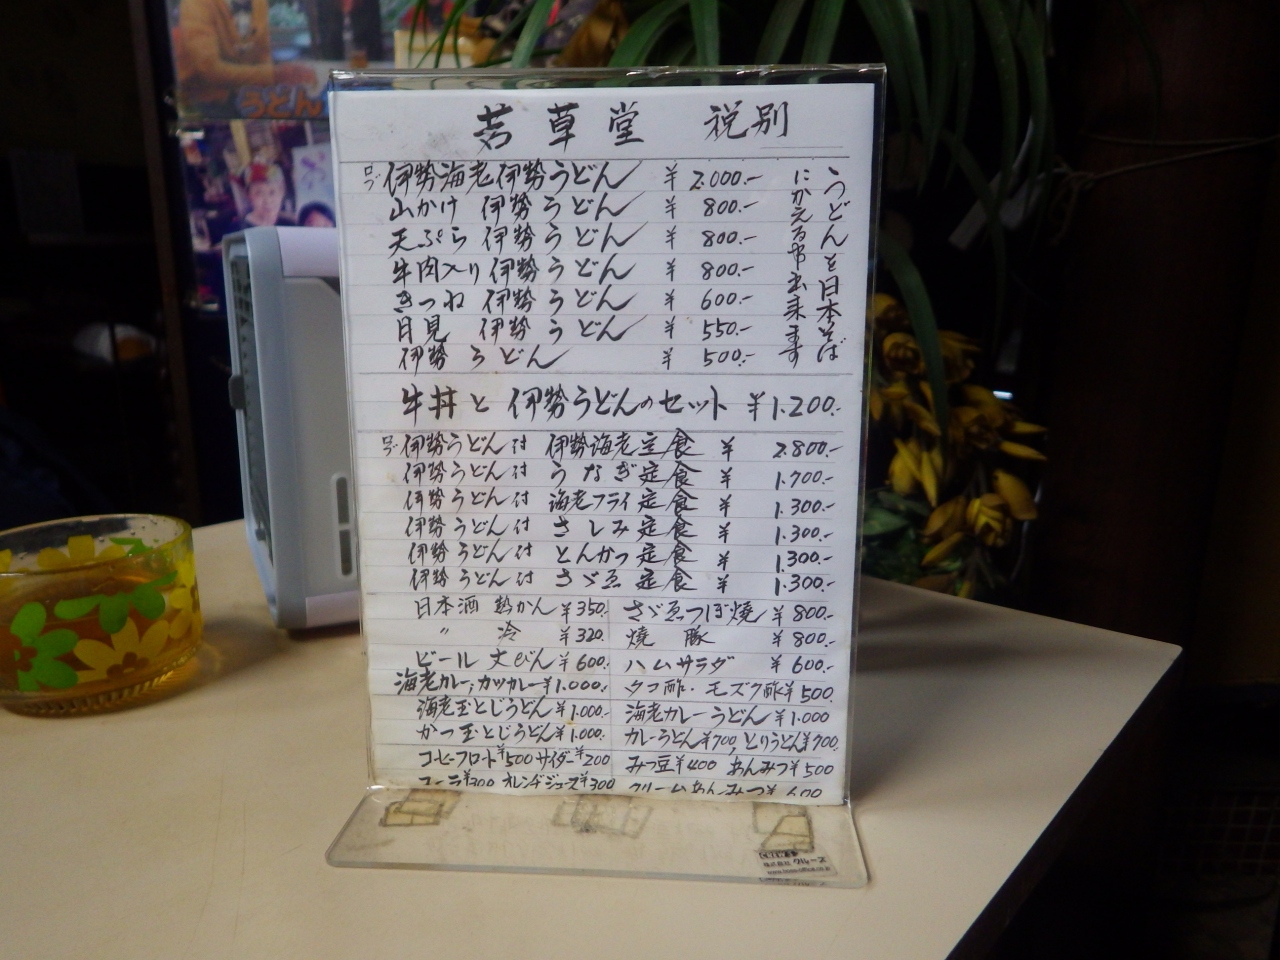 うどん
若草堂 税別
伊勢海老伊勢うどん ¥2.000.-
山かけ 伊勢うどん ¥800.-
天ぷら 伊勢うどん ¥800.-
牛肉入り伊勢うどん ¥800.-
きつね 伊勢うどん ¥600.-
月見 伊勢うどん ¥550.-
伊勢うどん ¥500.-
うどんを日本そば
にかえる事出来ます
牛丼と伊勢うどんのセット ¥1.200.-
伊勢うどん付 伊勢海老定食 ¥2.800.-
伊勢うどん付 うなぎ定食 ¥1.700.-
伊勢うどん付 海老フライ定食 ¥1.300.-
伊勢うどん付 さしみ定食 ¥1.300.-
伊勢うどん付 とんかつ定食 ¥1.300.-
伊勢うどん付 さゞゑ定食 ¥1.300.-
日本酒 熱かん ¥350. さゞゑつぼ焼 ¥800.-
〃 冷 ¥320. 焼豚 ¥800.-
ビール 大びん ¥600.- ハムサラダ ¥600.-
海老カレー, カツカレー ¥1.000.- タコ酢・モズク酢 ¥500
海老玉とじうどん ¥1.000.- 海老カレーうどん ¥1.000
かつ玉とじうどん ¥1.000.- カレーうどん¥700, とりうどん¥700.
コーヒーフロート¥500 サイダー¥200 みつ豆¥400 あんみつ¥500
コーラ¥300 オレンヂジュース¥300 クリームあんみつ¥600
株式会社 クルーズ